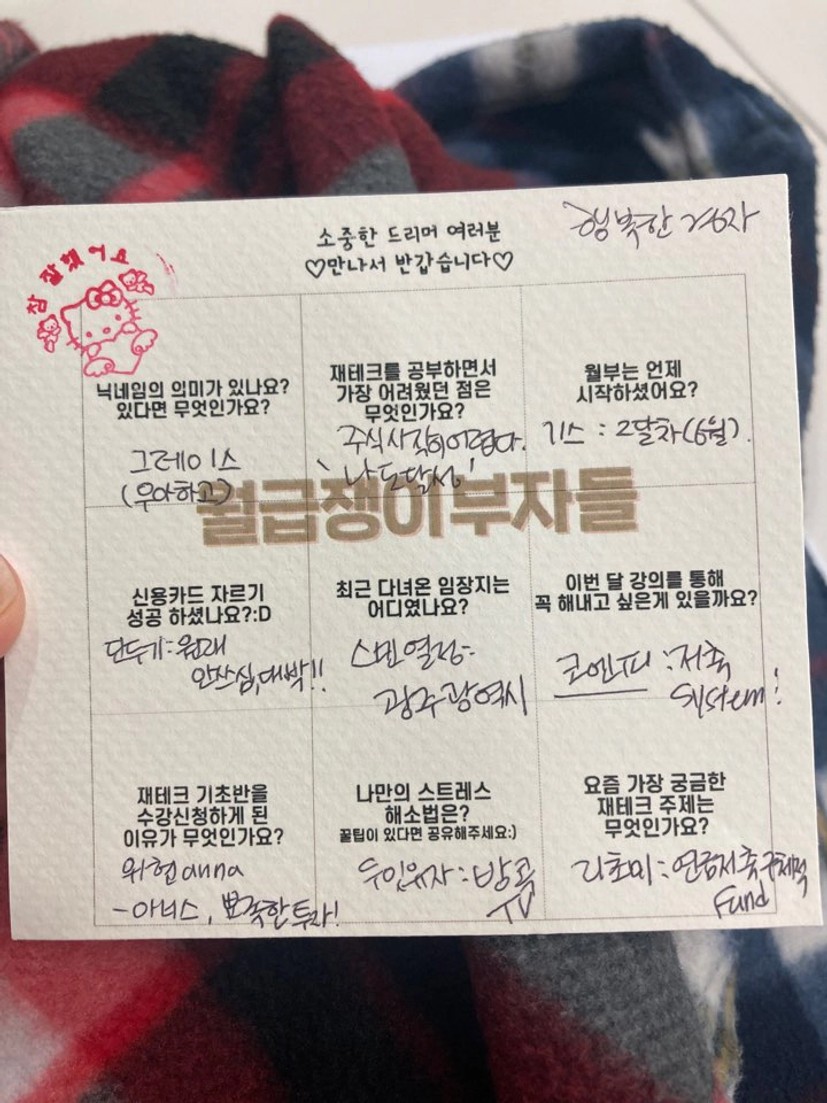 참 잘했어요
소중한 드리머 여러분
♡만나서 반갑습니다♡
행복한 겨자
닉네임의 의미가 있나요?
있다면 무엇인가요?
그레이스
(우아하고)
재테크를 공부하면서
가장 어려웠던 점은
무엇인가요?
주식시작이어렵다.
'나도달성'
월부는 언제
시작하셨어요?
기스 : 2달차(6월).
월급쟁이부자들
신용카드 자르기
성공 하셨나요?:D
단두가: 원래
안쓰심, 대박!!
최근 다녀온 임장지는
어디였나요?
스민열정:
광주광역시
이번 달 강의를 통해
꼭 해내고 싶은게 있을까요?
코엔피 : 저축
System!
재테크 기초반을
수강신청하게 된
이유가 무엇인가요?
위현anna
-아너스, 뾰족한투자!
나만의 스트레스
해소법은?
꿀팁이 있다면 공유해주세요:)
투입유자 : 방콕
TV
요즘 가장 궁금한
재테크 주제는
무엇인가요?
리초미: 연금저축구체적
Fund